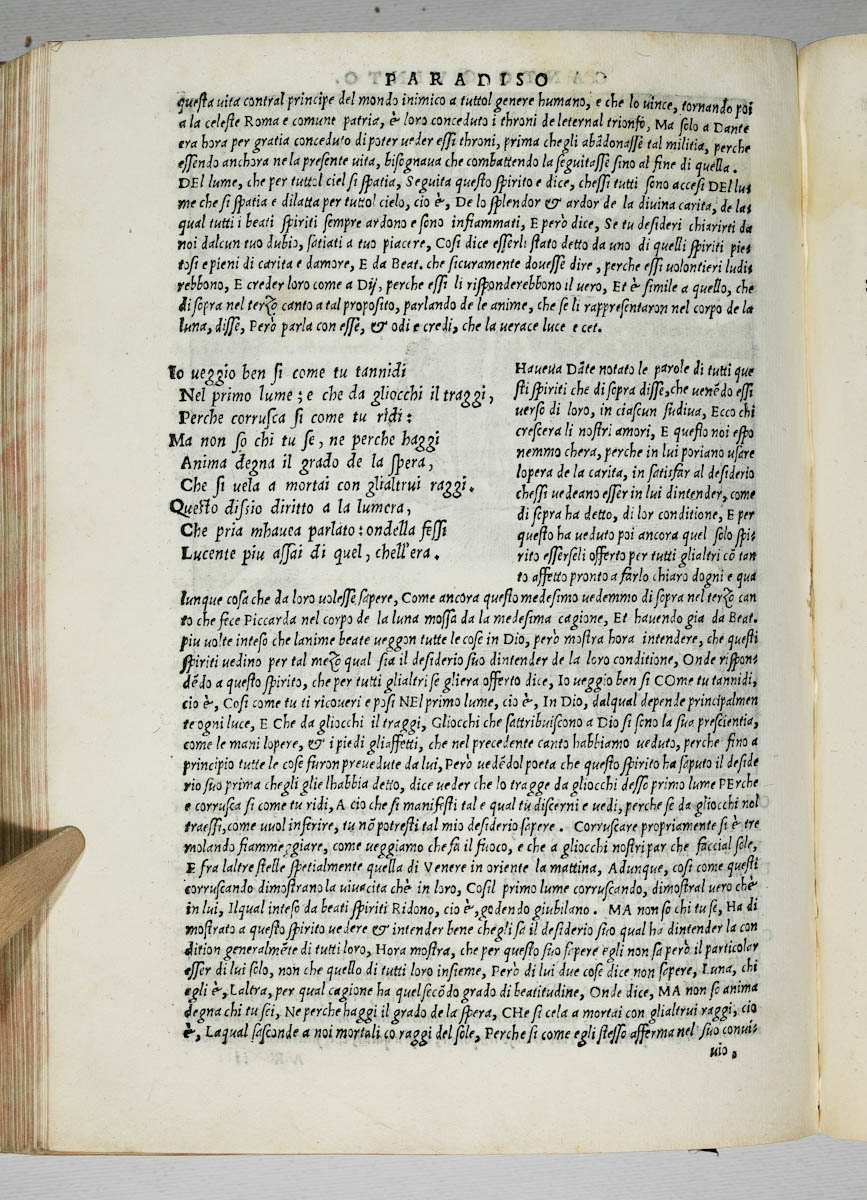 PARADISO
questa uita contral principe del mondo inimico a tuttol genere humano, e che lo uince, tornando poi
a la celeste Roma e comune patria, è loro conceduto i throni de leternal trionfo, Ma solo a Dante
era hora per gratia conceduto di poter ueder essi throni, prima chegli abādonasse tal militia, perche
essendo anchora ne la presente uita, bisognaua che combattendo la seguitasse sino al fine di quella.
DEl lume, che per tuttol ciel si spatia, Seguita questo spirito e dice, chessi tutti sono accesi DEl lu⸗
me che si spatia e dilatta per tuttol cielo, cio è, De lo splendor & ardor de la diuina carita, de la⸗
qual tutti i beati spiriti sempre ardono e sono infiammati, E però dice, Se tu desideri chiarirti da
noi dalcun tuo dubio, satiati a tuo piacere, Cosi dice esserli stato detto da uno di quelli spiriti pie⸗
tosi e pieni di carita e damore, E da Beat. che sicuramente douesse dire, perche essi uolontieri ludi⸗
rebbono, E creder loro come a Dij, perche essi li risponderebbono il uero, Et è simile a quello, che
di sopra nel terzo canto a tal proposito, parlando de le anime, che se li rappresentaron nel corpo de la
luna, disse, Però parla con esse, & odi e credi, che la uerace luce e cet.
Io ueggio ben si come tu tannidi
Nel primo lume; e che da gliocchi il traggi,
Perche corrusca si come tu ridi:
Ma non so chi tu se, ne perche haggi
Anima degna il grado de la spera,
Che si uela a mortai con glialtrui raggi.
Questo dissio diritto a la lumera,
Che pria mhauea parlato: ondella fessi
Lucente piu assai di quel, chell'era.
Haueua Dāte notato le parole di tutti que
sti spiriti che di sopra disse, che uenēdo essi
uerso di loro, in ciascun sudiua, Ecco chi
crescera li nostri amori, E questo noi espo
nemmo chera, perche in lui poriano usare
lopera de la carita, in satisfar al desiderio
chessi uedeano esser in lui dintender, come
di sopra ha detto, di lor conditione, E per
questo ha ueduto poi ancora quel solo spi⸗
rito esserseli offerto per tutti glialtri cō tan
to affetto pronto a farlo chiaro dogni e qua
lunque cosa che da loro uolesse sapere, Come ancora questo medesimo uedemmo di sopra nel terzo can
to che fece Piccarda nel corpo de la luna mossa da la medesima cagione, Et hauendo gia da Beat.
piu uolte inteso che lanime beate ueggon tutte le cose in Dio, però mostra hora intendere, che questi
spiriti uedino per tal mezo qual sia il desiderio suo dintender de la loro conditione, Onde rispon⸗
dēdo a questo spirito, che per tutti glialtri se gliera offerto dice, Io ueggio ben si COme tu tannidi,
cio è, Cosi come tu ti ricoueri e posi NEl primo lume, cio è, In Dio, dalqual depende principalmen
te ogni luce, E Che da gliocchi il traggi, Gliocchi che sattribuiscono a Dio si sono la sua prescientia,
come le mani lopere, & i piedi gliaffetti, che nel precedente canto habbiamo ueduto, perche fino a
principio tutte le cose furon preuedute da lui, Però uedēdol poeta che questo spirito ha saputo il deside
rio suo prima chegli glielhabbia detto, dice ueder che lo tragge da gliocchi desso primo lume PErche
e corrusca si come tu ridi, A cio che si manifesti tal e qual tu discerni e uedi, perche se da gliocchi nol
traessi, come uuol inferire, tu nō potresti tal mio desiderio sapere. Corruscare propriamente si è tre
molando fiammeggiare, come ueggiamo che fa il fuoco, e che a gliocchi nostri par che faccial sole,
E fra laltre stelle spetialmente quella di Venere in oriente la mattina, Adunque, cosi come questi
corruscando dimostrano la uiuacita chè in loro, Cosil primo lume corruscando, dimostral uero chè
in lui, Ilqual inteso da beati spiriti Ridono, cio è, godendo giubilano. MA non so chi tu se, Ha di
mostrato a questo spirito uedere & intender bene chegli sa il desiderio suo qual ha dintender la con
dition generalmēte di tutti loro, Hora mostra, che per questo suo sapere egli non sa però il particolar
esser di lui solo, non che quello di tutti loro insieme, Però di lui due cose dice non sapere, Luna, chi
egli è, Laltra, per qual cagione ha quel secōdo grado di beatitudine, Onde dice, MA non so anima
degna chi tu sei, Ne perche haggi il grado de la spera, CHe si cela a mortai con glialtrui raggi, cio
è, Laqual sasconde a noi mortali co raggi del sole, Perche si come egli stesso afferma nel suo conui⸗
uio.